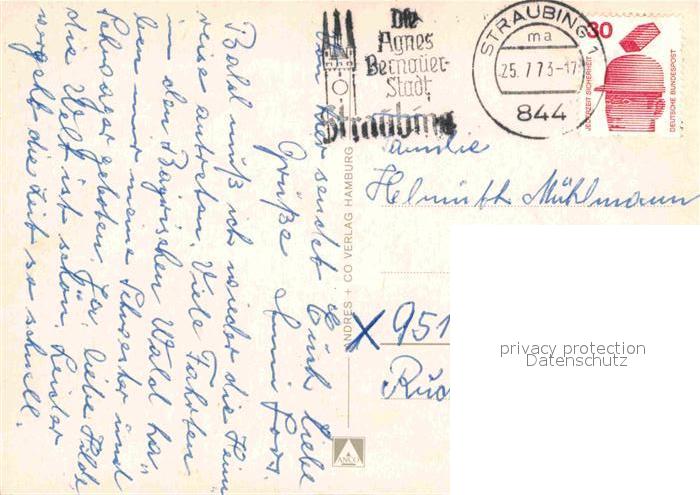 Von hier sendet Euch liebe
Grüße
Bald muß ich wieder die Heim
reise antreten. Viele Fahrten
in den Bayrischen Wald ha
ben mir meine Schwester und
Schwager geboten. Ja, liebe Hilde
die Welt ist schön. Leider
vergeht die Zeit so schnell.
Die
Agnes
Bernauer-
Stadt
Straubing
STRAUBING 1
ma
25.7.73-17
844
30
JEDERZEIT SICHERHEIT
DEUTSCHE BUNDESPOST
Familie
Helmuth Mühlmann
X 951
ANDRES + CO VERLAG HAMBURG
ANCO
privacy protection
Datenschutz